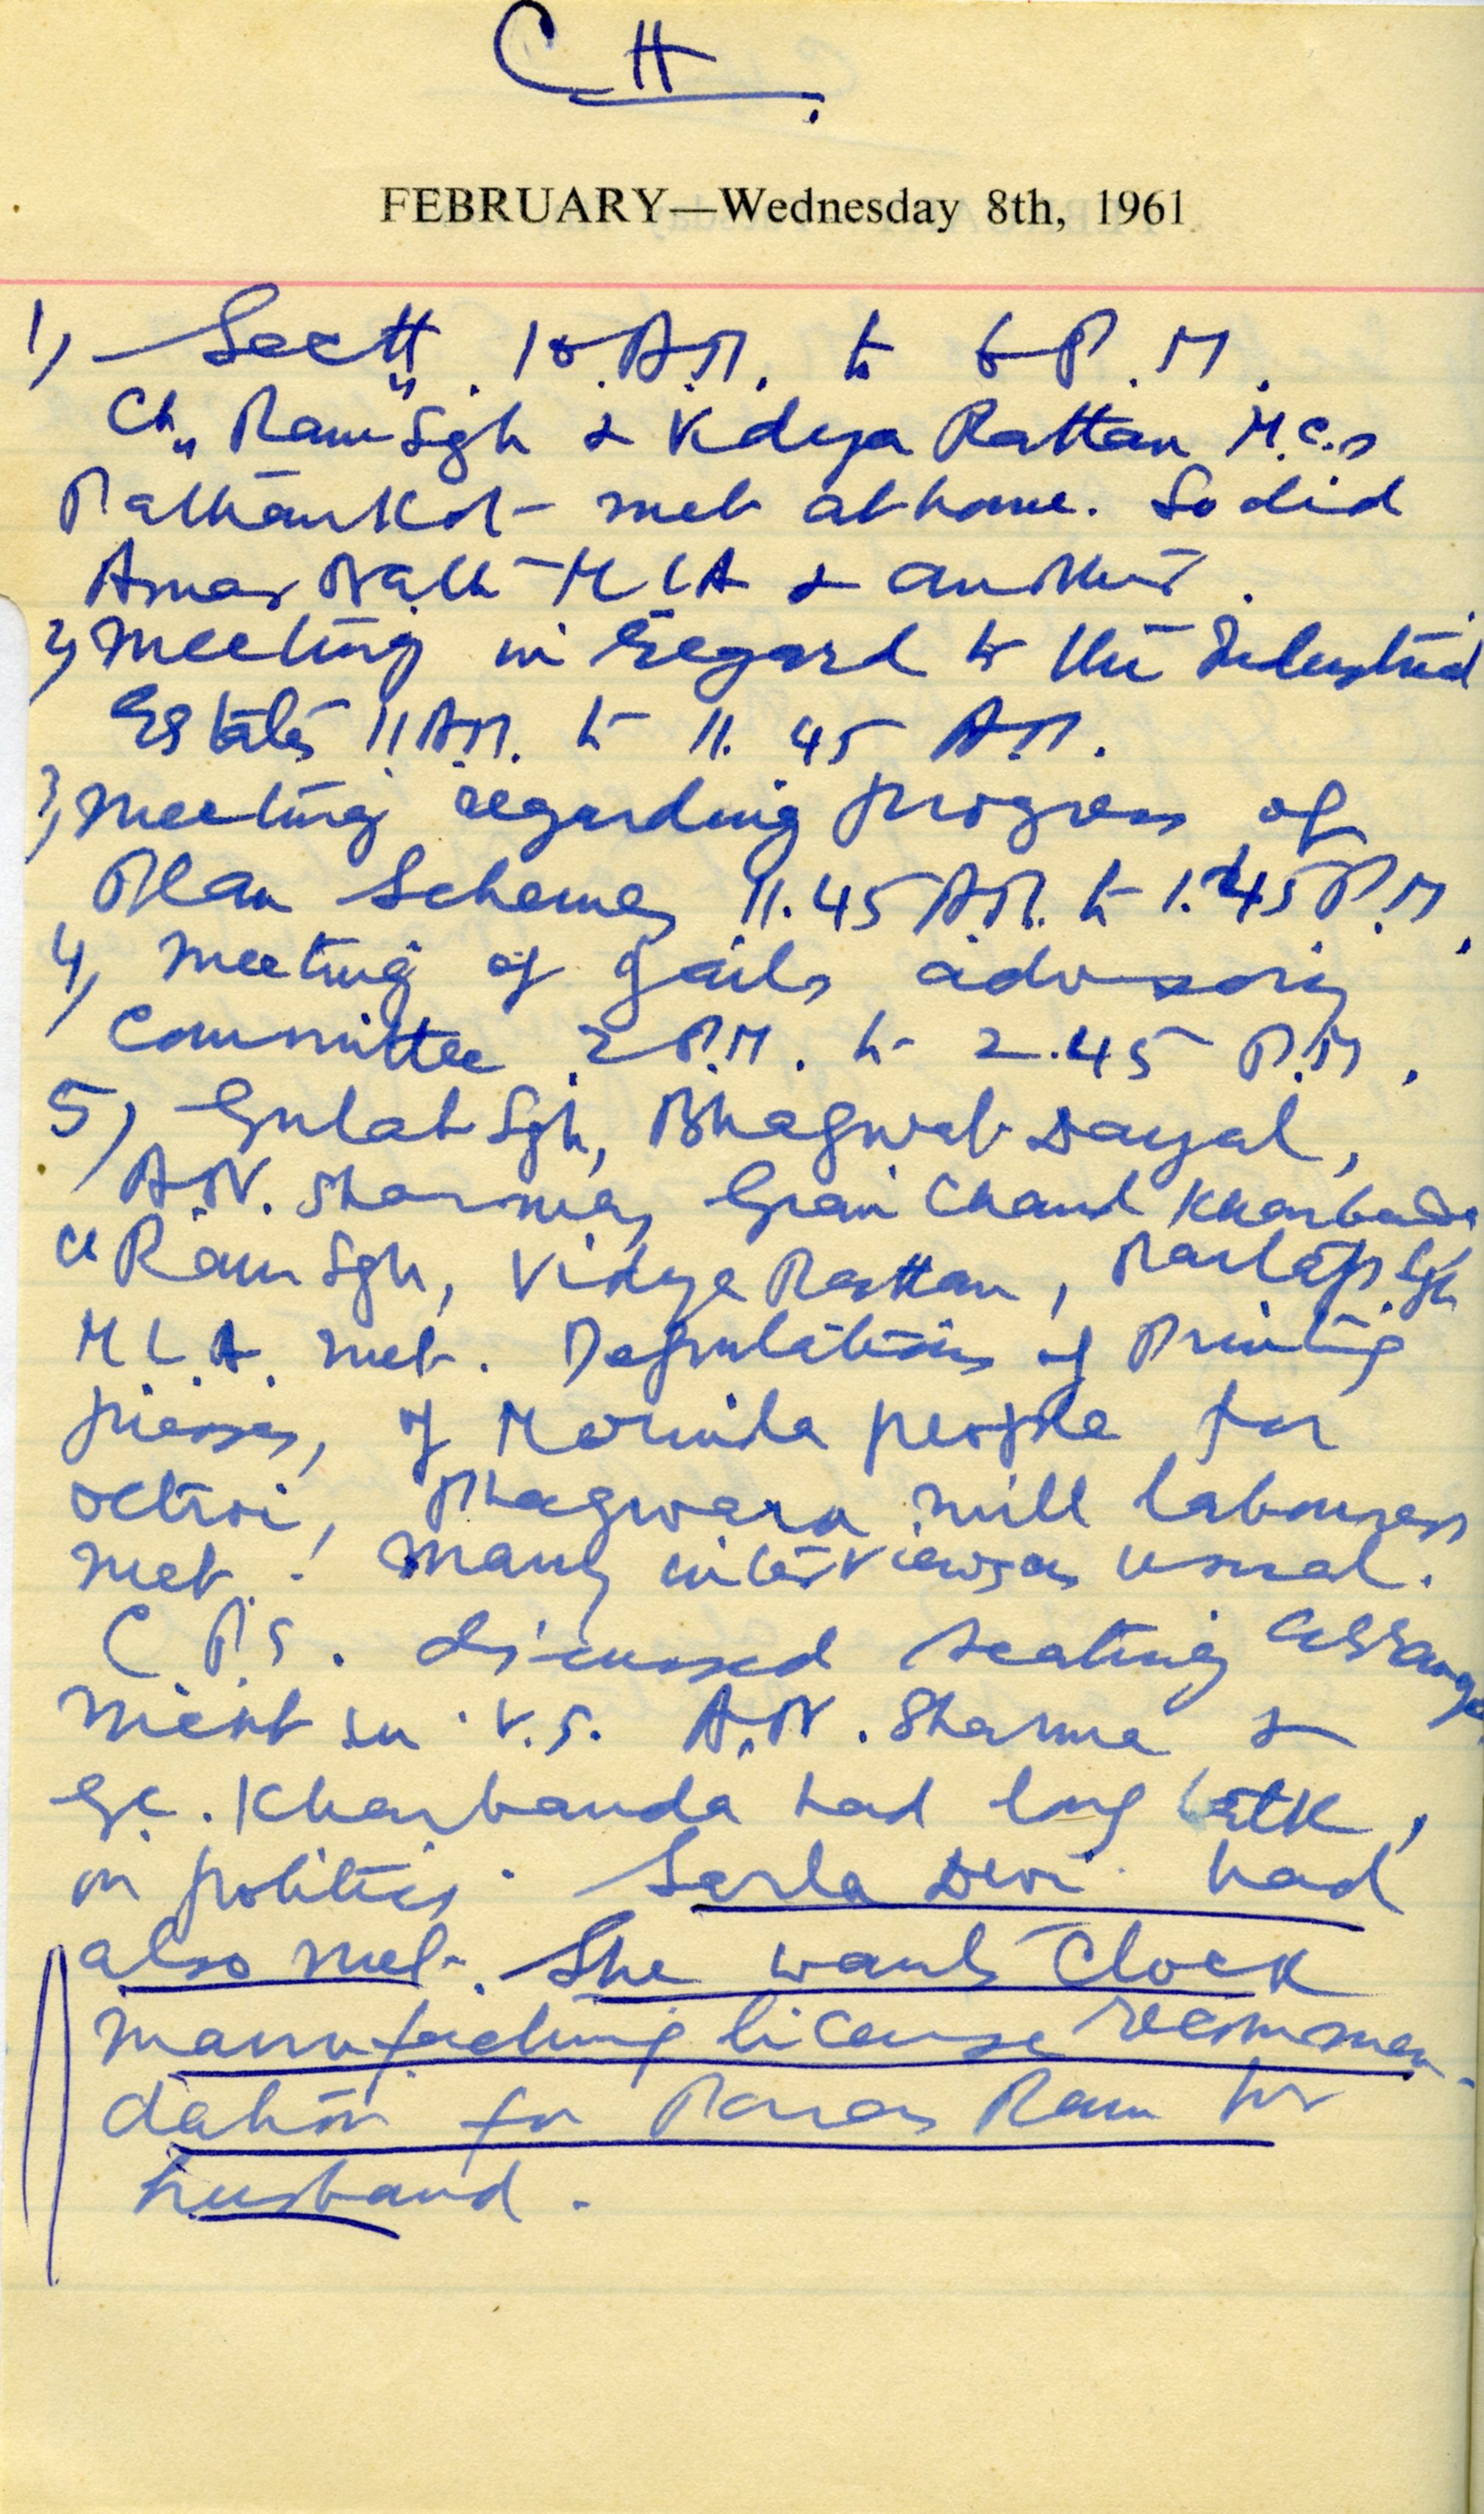 CH.
FEBRUARY—Wednesday 8th, 1961
1) Sectt. 10 A.M. to 6 P.M.
Ch. Ram Sgh & Vidya Rattan M.C.s
Pathankot met at home. So did
Amar Nath MLA & another.
2) Meeting in regard to the Industrial
Estates 11 A.M. to 11.45 A.M.
3) Meeting regarding progress of
Plan Schemes 11.45 A.M. to 1.45 P.M.
4) Meeting of Jails advisory
Committee 2 P.M. to 2.45 P.M.
5) Gulab Sgh, Bhagwat Dayal,
A.N. Sharma, Gian Chand Kharbanda
Ch Ram Sgh, Vidya Rattan, Partap Sgh
M.L.A. met. Deputations of Printing
presses, of Morinda people for
octroi, Phagwara mill labourers
met. Many interviews as usual.
C.P.S. discussed seating arrange
ment in V.S. A.N. Sharma &
G.C. Kharbanda had long talk,
on politics. Sarla Devi had
also met. She wants Clock
manufacturing license recommen-
dation for Paras Ram her
husband.